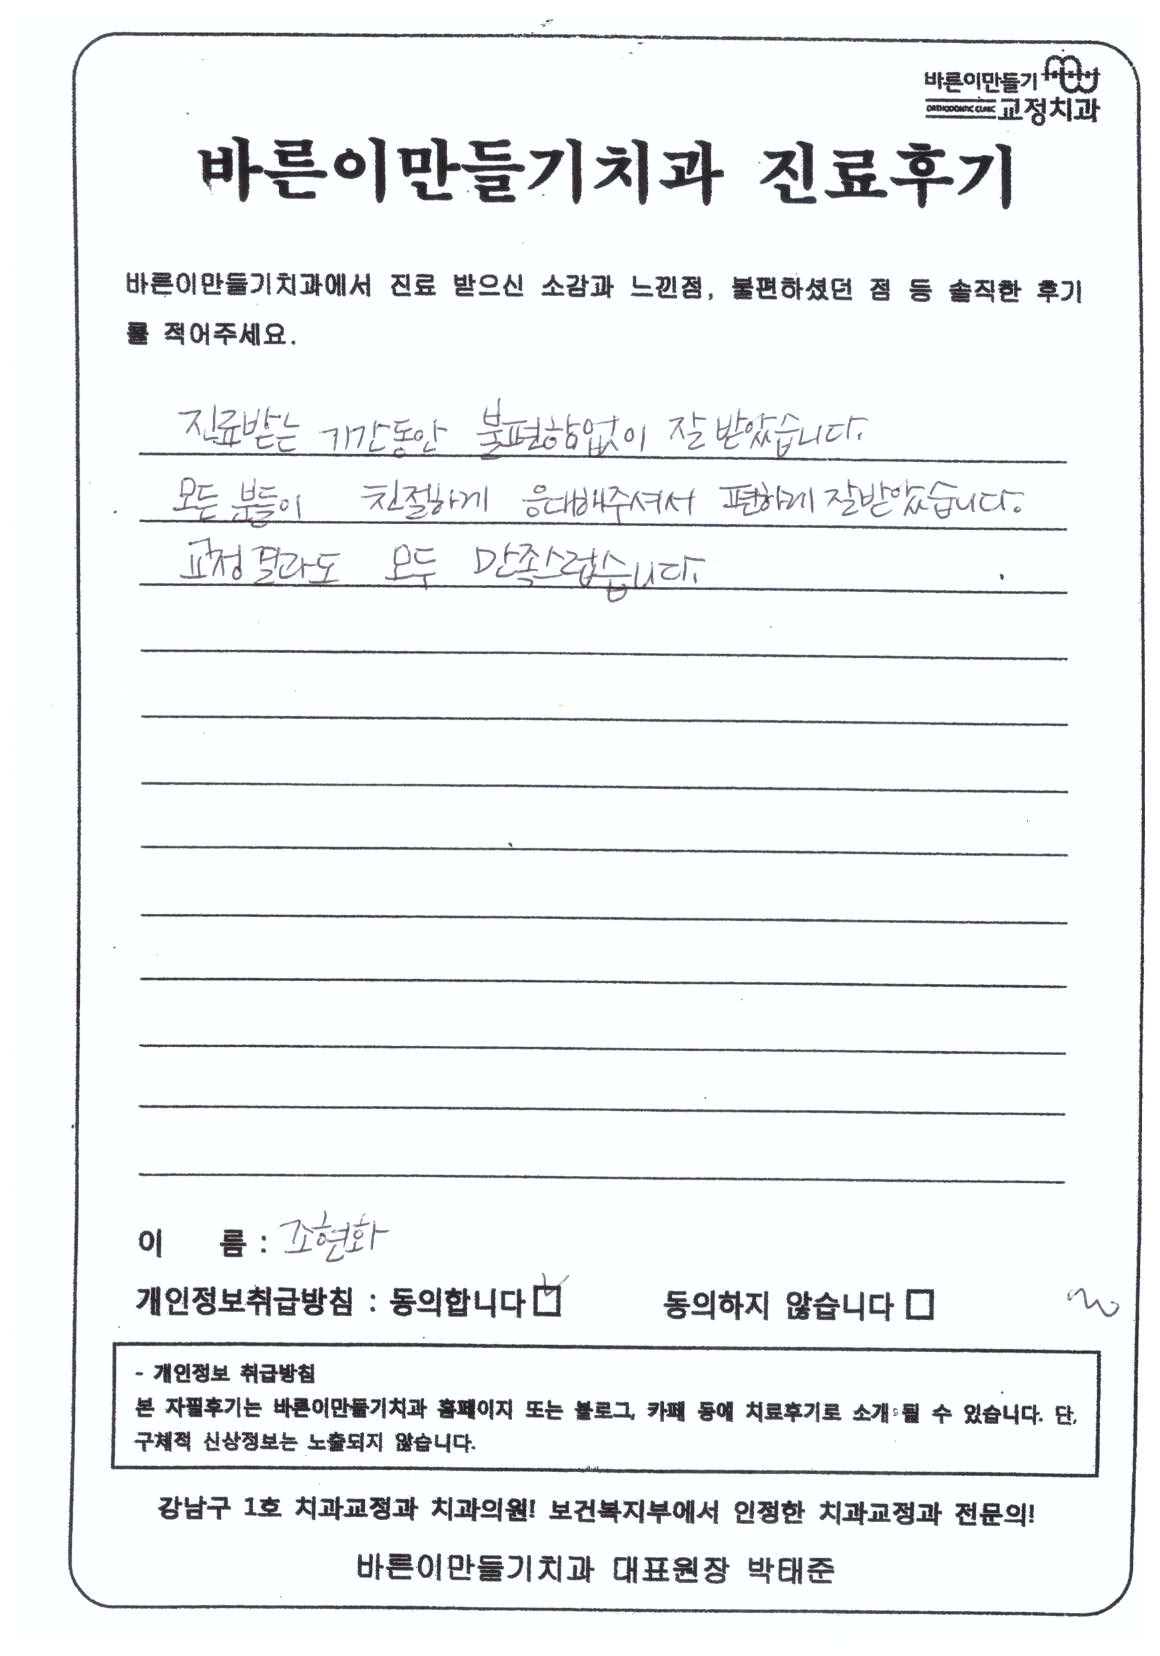 바른이만들기
ORTHODONTIC CLINIC 교정치과
바른이만들기치과 진료후기
바른이만들기치과에서 진료 받으신 소감과 느낀점, 불편하셨던 점 등 솔직한 후기
를 적어주세요.
진료받는 기간동안 불편함없이 잘 받았습니다.
모든 분들이 친절하게 응대해주셔서 편하게 잘받았습니다.
교정 결과도 모두 만족스럽습니다.
이 름 : 조현화
개인정보취급방침 : 동의합니다 동의하지 않습니다
- 개인정보 취급방침
본 자필후기는 바른이만들기치과 홈페이지 또는 블로그, 카페 등에 치료후기로 소개 될 수 있습니다. 단,
구체적 신상정보는 노출되지 않습니다.
강남구 1호 치과교정과 치과의원! 보건복지부에서 인정한 치과교정과 전문의!
바른이만들기치과 대표원장 박태준